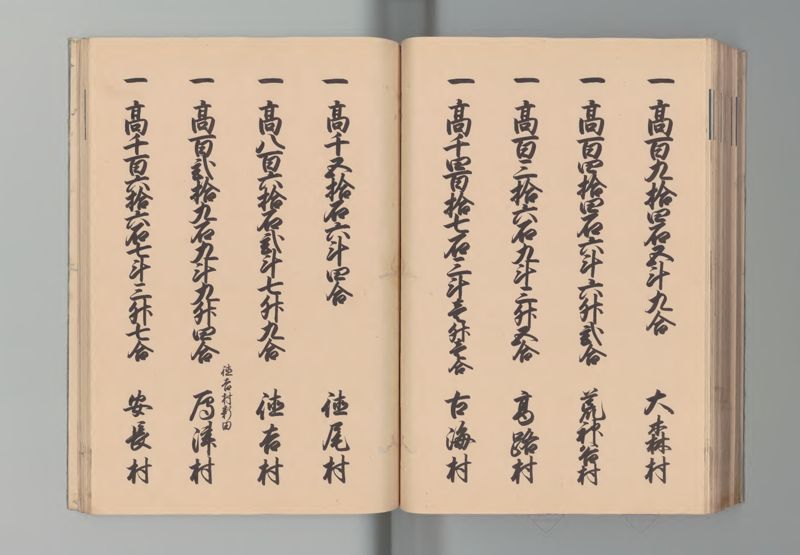 一 高百九拾四石五斗九合 大森村
一 高百四拾四石六斗六升弐合 荒神谷村
一 高百三拾六石九斗三升五合 高路村
一 高千四百拾七石三斗壱升壱合 古海村
一 高千五拾石六斗四合 徳尾村
一 高八百六拾石弐斗七升九合 徳吉村
徳吉村新田
一 高百弐拾九石九斗九升四合 馬津村
一 高千百六拾六石七斗三升七合 安長村